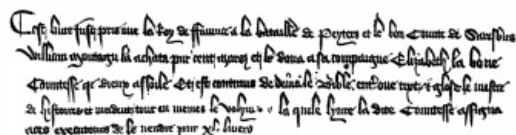 Cest livre fust prise oue le Roy de ffraunce a la bataille de Peyters et le bon Counte de Saresbirs
William montagu la achata pur cent mars et le dona a sa compaigne Elizabeth la bone
Countesse qe dieux assoile Et est continus dedeins le Bible entier oue texte et glose le mestre
de histoires et incident tout en memes le volym la quele lyvre la dite Countesse assigna
a ces executours de le vendre pur xl livers